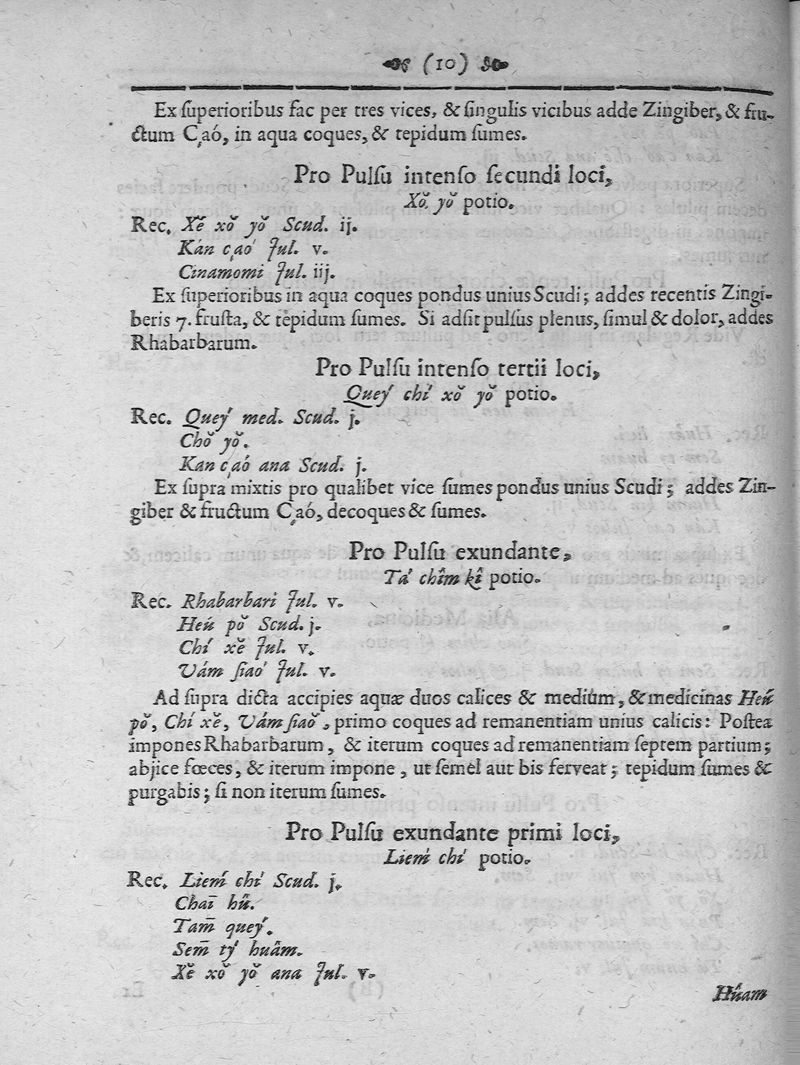 (10)
Ex ſuperioribus fac per tres vices, & ſingulis vicibus adde Zingiber, & fru-
ctum C̨aó, in aqua coques, & tepidum ſumes.
Pro Pulſu intenſo ſecundi loci,
Xŏ. yŏ potio.
Rec. Xĕ xŏ yŏ Scud. ij.
Kán c̨aó Jul. v.
Cinamomi Jul. iij.
Ex ſuperioribus in aqua coques pondus unius Scudi; addes recentis Zingi-
beris 7. fruſta, & tepidum ſumes. Si adſit pulſus plenus, ſimul & dolor, addes
Rhabarbarum.
Pro Pulſu intenſo tertii loci,
Queý chí xŏ yŏ potio.
Rec. Queý med. Scud. j.
Chŏ yŏ.
Kan c̨aó ana Scud. j.
Ex ſupra mixtis pro qualibet vice ſumes pondus unius Scudi; addes Zin-
giber & fructum C̨aó, decoques & ſumes.
Pro Pulſu exundante,
Tá chîm kî potio.
Rec. Rhabarbari Jul. v.
Heú pŏ Scud. j.
Chí xĕ Jul. v.
Vám ſiaó Jul. v.
Ad ſupra dicta accipies aquæ duos calices & medium, & medicinas Heú
pŏ, Chí xĕ, Vám ſiaŏ, primo coques ad remanentiam unius calicis: Poſtea
impones Rhabarbarum, & iterum coques ad remanentiam ſeptem partium;
abjice fœces, & iterum impone, ut ſemel aut bis ferveat; tepidum ſumes &
purgabis; ſi non iterum ſumes.
Pro Pulſu exundante primi loci,
Lieḿ chí potio.
Rec. Lieḿ chí Scud. j.
Chaī hû.
Tam̄ queý.
Sem̄ tý huâm.
Xĕ xŏ yŏ ana Jul. v.
Hûam